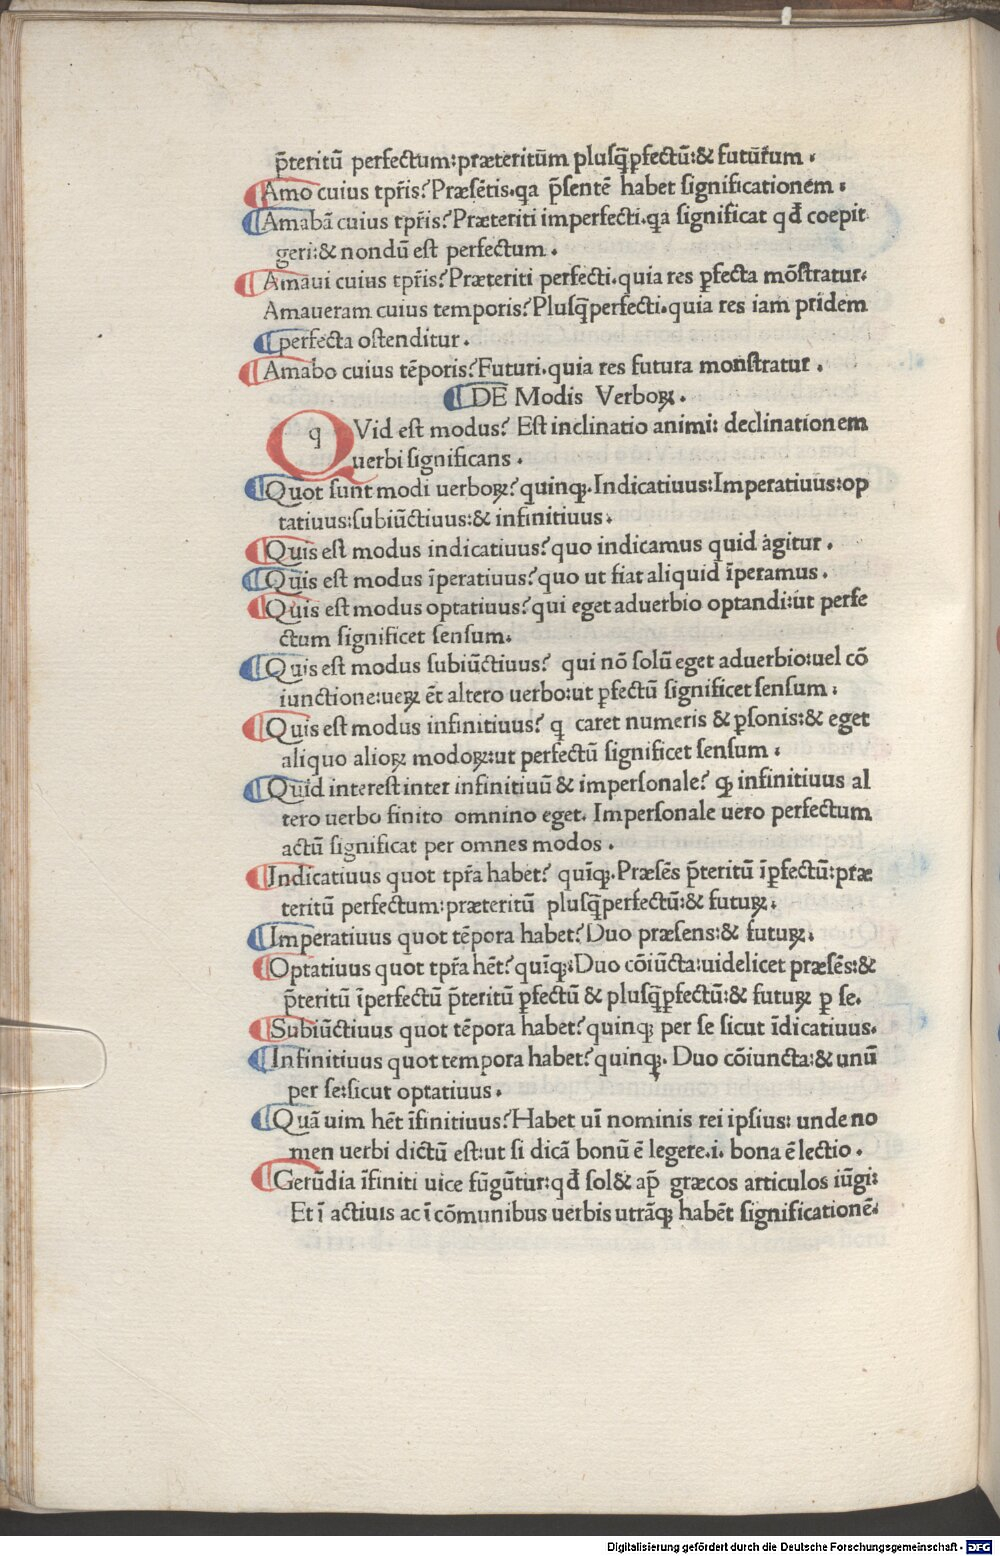 p̄teritū perfectum:præteritūm plusq̄ꝑfectū:& futūrum .
Amo cuius tp̄ris? Præsētis.qa p̄sentē habet significationem .
Amabā cuius tp̄ris? Præteriti imperfecti.qa significat qđ coepit
geri:& nondū est perfectum .
Amaui cuius tp̄ris? Præteriti perfecti.quia res ꝑfecta mōstratur.
Amaueram cuius temporis? Plusq̄perfecti.quia res iam pridem
perfecta ostenditur .
Amabo cuius tēporis? Futuri.quia res futura monstratur .
DE Modis Verboꝝ .
QVid est modus? Est inclinatio animi: declinationem
uerbi significans .
Quot sunt modi uerboꝝ? quinqꝫ. Indicatiuus:Imperatiuus:op
tatiuus:subiūctiuus:& infinitiuus.
Quis est modus indicatiuus? quo indicamus quid agitur .
Quis est modus īperatiuus? quo ut fiat aliquid īperamus .
Quis est modus optatiuus? qui eget aduerbio optandi:ut perfe
ctum significet sensum.
Quis est modus subiūctiuus? qui nō solū eget aduerbio:uel cō
iunctione:ueꝝ ēt altero uerbo:ut ꝑfectū significet sensum .
Quis est modus infinitiuus? q caret numeris & ꝑsonis:& eget
aliquo alioꝝ modoꝝ:ut perfectū significet sensum .
Quid interest inter infinitiuū & impersonale? qꝫ infinitiuus al
tero uerbo finito omnino eget. Impersonale uero perfectum
actū significat per omnes modos .
Indicatiuus quot tp̄ra habet? quīqꝫ. Præsēs p̄teritū īꝑfectū:præ
teritū perfectum:præteritū plusq̄perfectū:& futuꝝ.
Imperatiuus quot tēpora habet? Duo præsens:& futuꝝ.
Optatiuus quot tp̄ra hēt? quīqꝫ. Duo cōiūcta:uidelicet præsēs:&
p̄teritū īperfectū p̄teritū ꝑfectū & plusq̄ꝑfectū:& futuꝝ ꝑ se.
Subiūctiuus quot tēpora habet? quinqꝫ per se sicut īdicatiuus.
Infinitiuus quot tempora habet? quinqꝫ. Duo cōiuncta:& unū
per se:sicut optatiuus .
Quā uim hēt īfinitiuus? Habet uī nominis rei ipsius: unde no
men uerbi dictū est:ut si dicā bonū ē legere.i. bona ē lectio .
Gerūdia īfiniti uice fūgūtur:qđ sol& ap̄ græcos articulos iūgi:
Et ī actiuis ac ī cōmunibus uerbis utrāqꝫ habēt significationē.
Digitalisierung gefördert durch die Deutsche Forschungsgemeinschaft - DFG